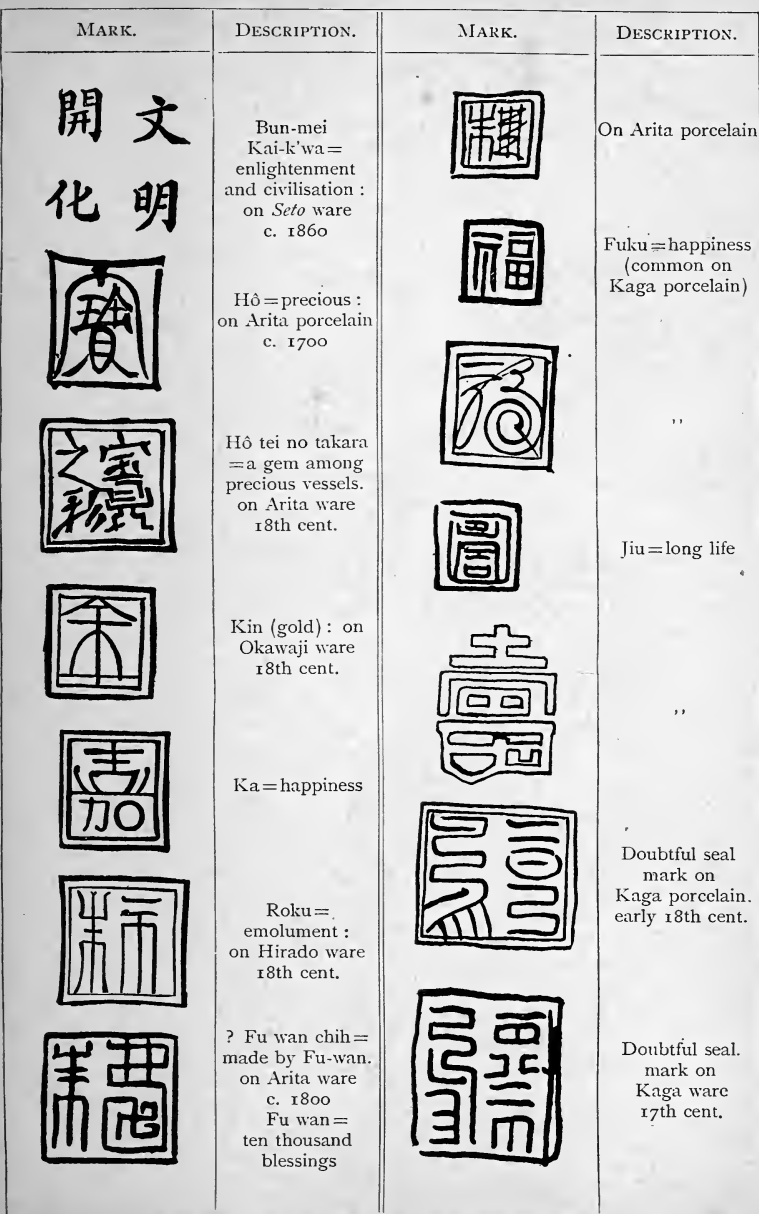 MARK.
DESCRIPTION.
文明
開化
Bun-mei
Kai-k'wa=
enlightenment
and civilisation :
on Seto ware
c. 1860
寶
Hô=precious :
on Arita porcelain
c. 1700
Hô tei no takara
=a gem among
precious vessels.
on Arita ware
18th cent.
Kin (gold) : on
Okawaji ware
18th cent.
嘉
Ka=happiness
Roku=
emolument :
on Hirado ware
18th cent.
? Fu wan chih=
made by Fu-wan.
on Arita ware
c. 1800
Fu wan=
ten thousand
blessings
MARK.
DESCRIPTION.
On Arita porcelain
福
Fuku=happiness
(common on
Kaga porcelain)
,,
Jiu=long life
壽
,,
Doubtful seal
mark on
Kaga porcelain.
early 18th cent.
Doubtful seal.
mark on
Kaga ware
17th cent.